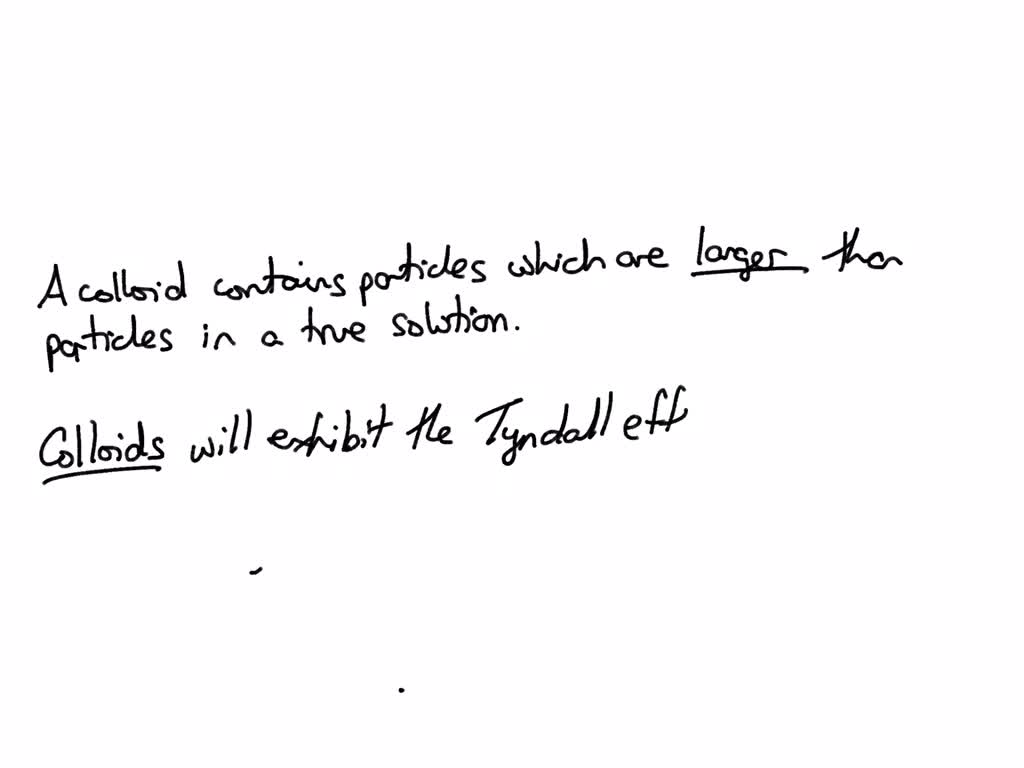 A colloid contains particles which are larger than
particles in a true solution.
Colloids will exhibit the Tyndall eff